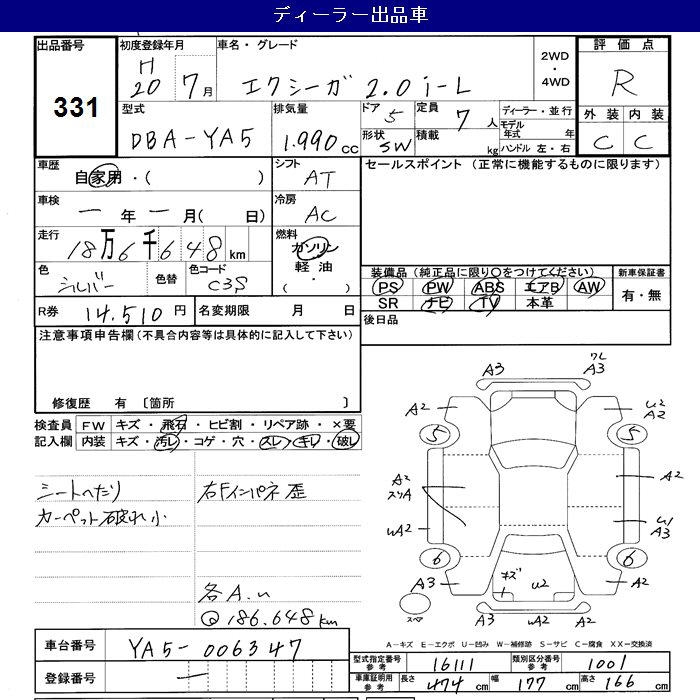 ディーラー出品車
出品番号 331
初度登録年月 H 20 7月
車名・グレード エクシーガ 2.0 i-L
2WD・4WD
評価点 R
型式 DBA-YA5
排気量 1.990 cc
ドア 5
定員 7 人
形状 SW
積載 kg
ディーラー・並行
モデル年式 年
ハンドル 左・右
外装 C
内装 C
車歴 自家用・( )
シフト AT
セールスポイント (正常に機能するものに限ります)
車検 ー年ー月(日)
冷房 AC
走行 18万6千648 km
燃料 ガソリン 軽油 ( ・ )
色 シルバー
色替
色コード C3S
装備品(純正品に限り○をつけてください)
新車保証書 有・無
PS PW ABS エアB AW
SR ナビ TV 本革
R券 14.510 円
名変期限 月 日
後日品
注意事項申告欄(不具合内容等は具体的に記入して下さい)
修復歴 有 〔箇所 〕
検査員記入欄
FW キズ・飛石・ヒビ割・リペア跡・×要
内装 キズ・汚レ・コゲ・穴・スレ・キレ・破レ
シートへたり
カーペット破れ小
右Fインパネ歪
各A.u
@186.648km
A3
ワレ A3
A2
U2 A2
5
5
A2 スリA
A2
UA2
U1 A3
6
6
A3
キズ
U2
A2
スペア
A3
UA2
A2
A-キズ E-エクボ U-凹み W-補修跡 S-サビ C-腐食 XX-交換済
車台番号 YA5-006347
登録番号 ー
型式指定番号 参考 16111
類別区分番号 参考 1001
車庫証明用 参考 長さ 474 cm 幅 177 cm 高さ 166 cm